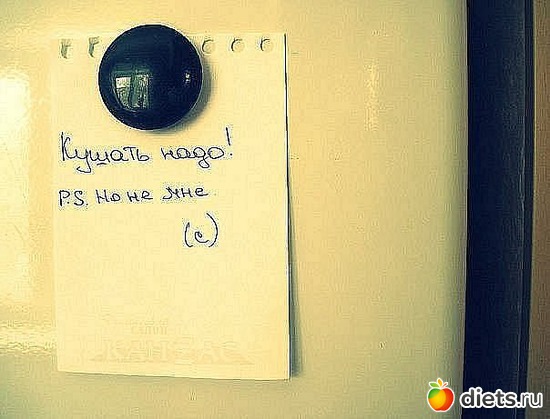 Кушать надо!
P.S. Но не мне.
(с)
diets.ru